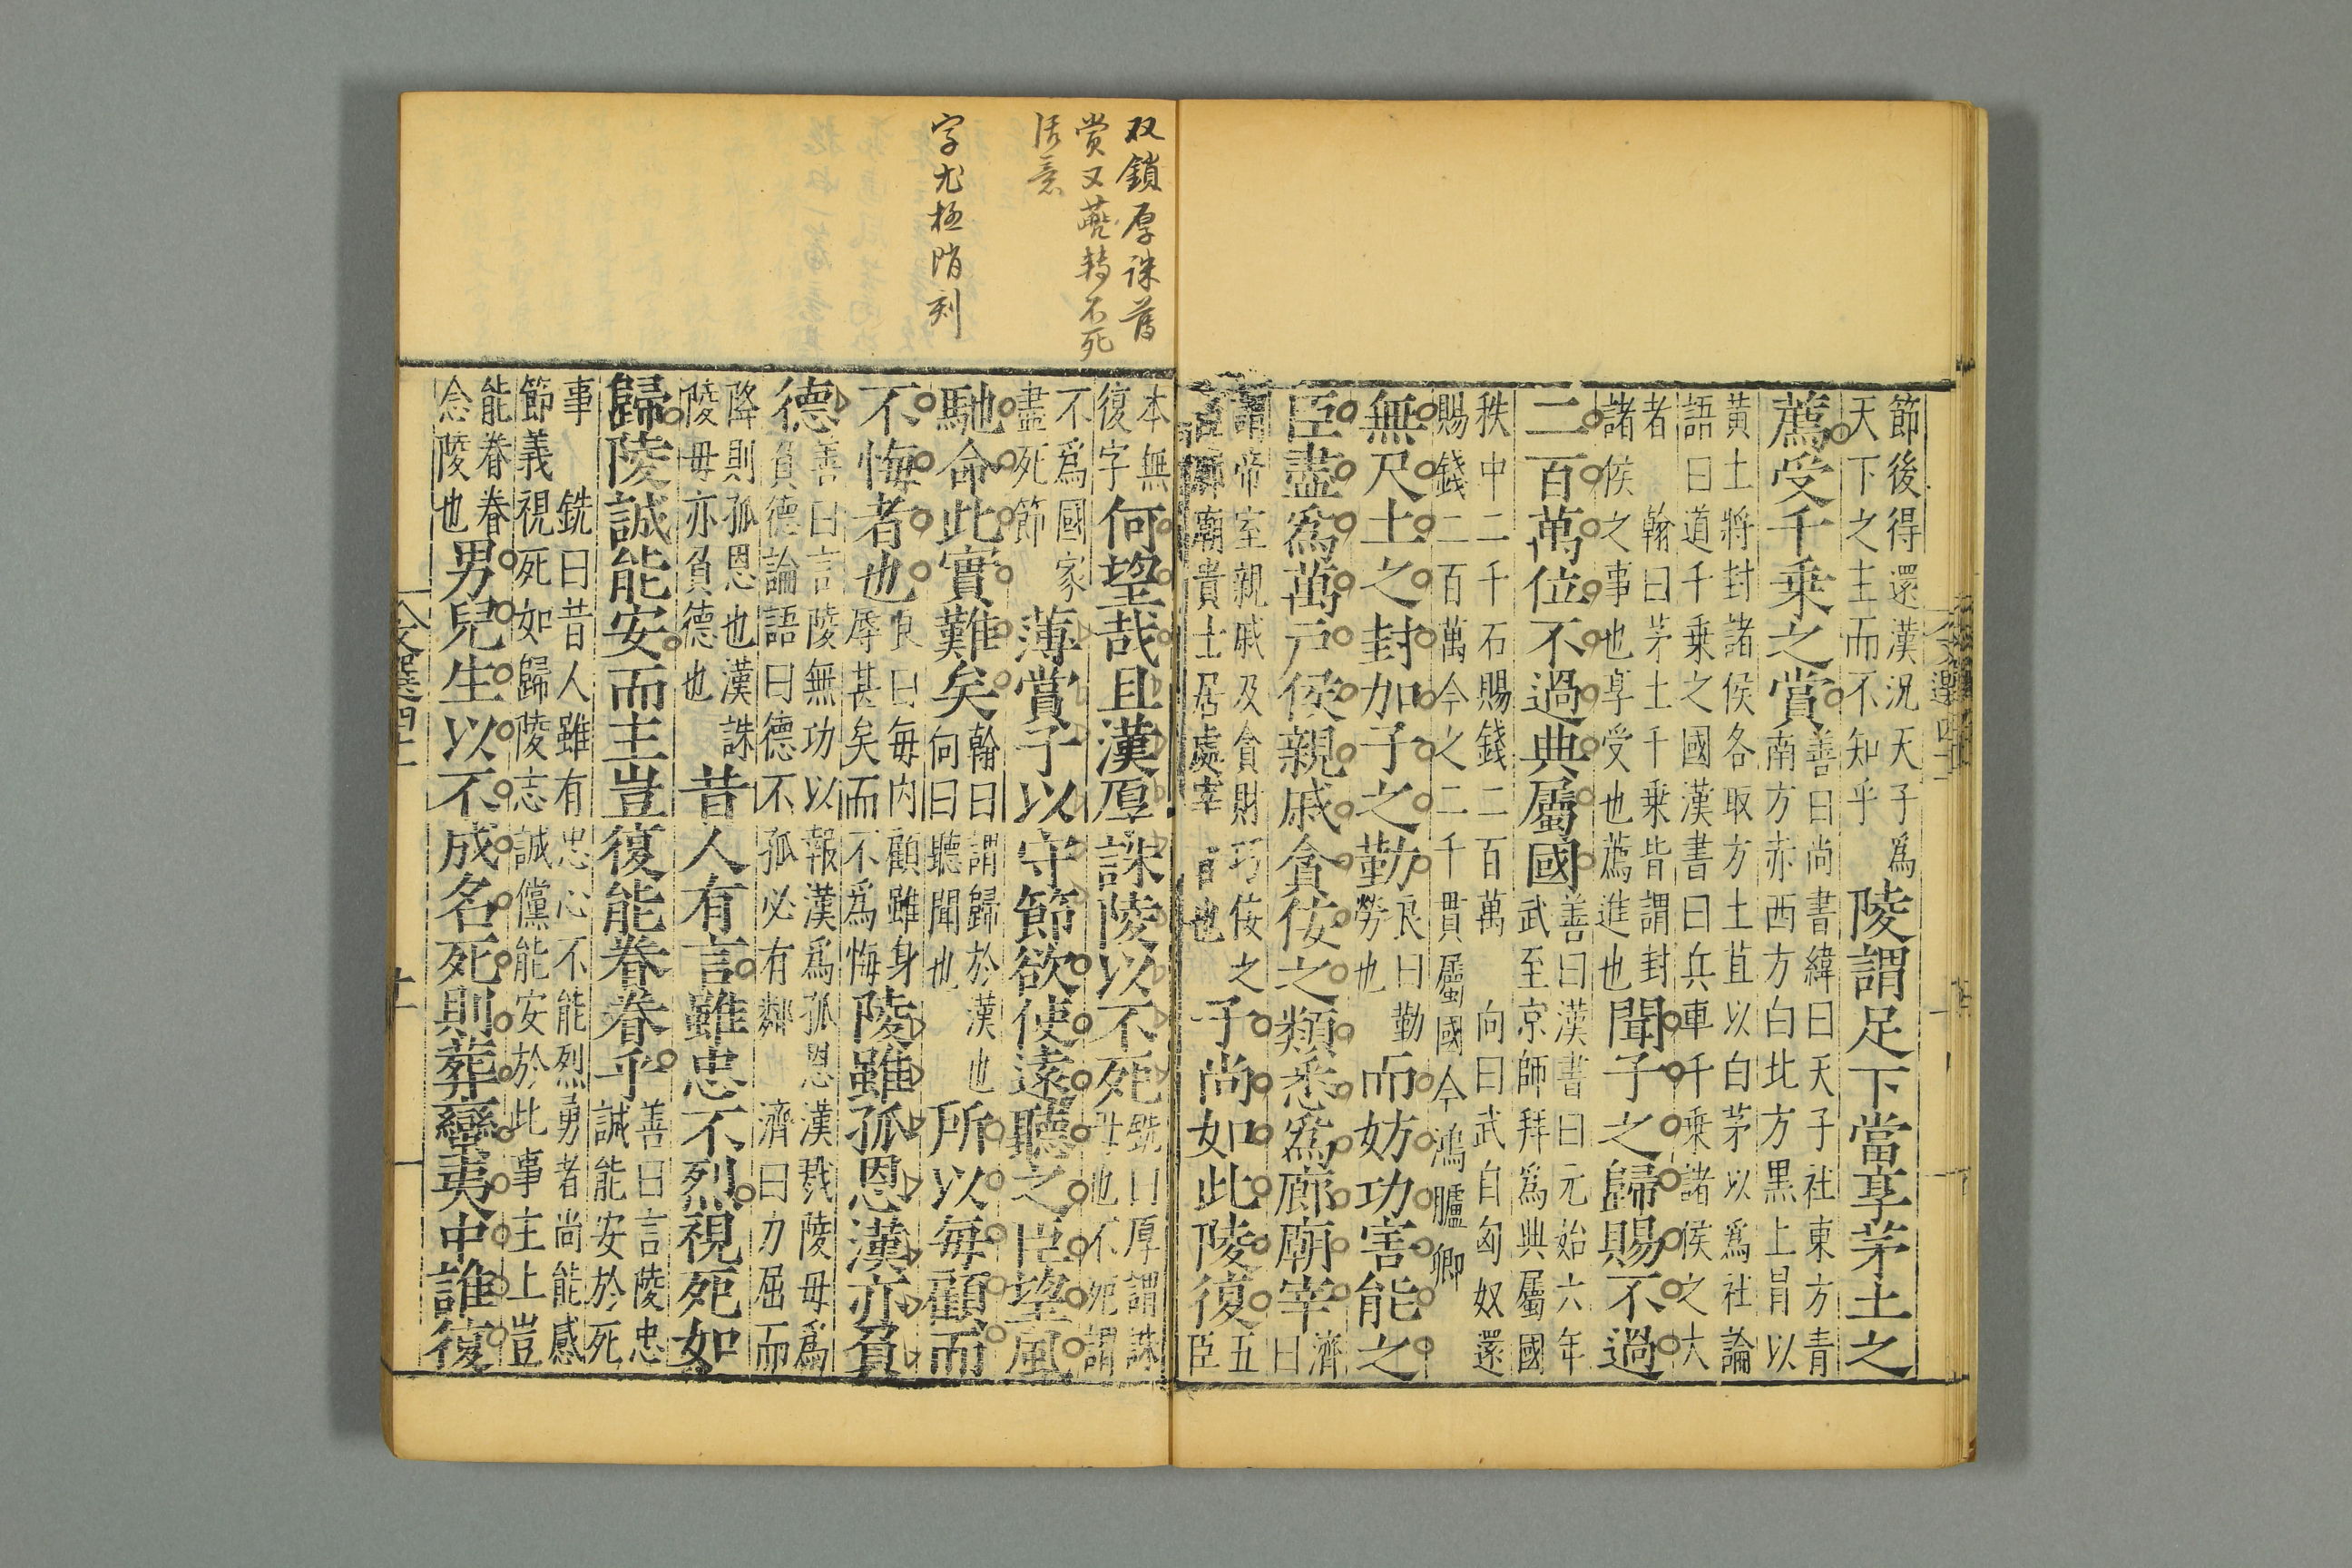 節後得還漢況天子爲
天下之主而不知乎
陵謂足下當享茅土之
薦受千乗之賞
善曰尚書緯曰天子社東方青
南方赤西方白北方黒上冐以
黄土將封諸侯各取方土苴以白茅以爲社論
語曰道千乗之國漢書曰兵車千乗諸侯之大
者　翰曰茅土千乗皆謂封
諸侯之事也享受也薦進也
聞子之歸賜不過
二百萬位不過典屬國
善曰漢書曰元始六年
武至京師拜爲典屬國
秩中二千石賜錢二百萬　向曰武自匈奴還
賜錢二百萬今之二千貫屬國今鴻臚卿
無尺土之封加子之勤
良曰勤
勞也
而妨功害能之
臣盡爲萬戸侯親戚貪佞之類悉爲廊廟宰
濟
曰
謂帝室親戚及貪財巧佞之
廊廟貴士居處宰　也
子尚如此陵復
五
臣
本無
復字
何望哉且漢厚誅陵以不死
銑曰厚謂誅
母也不死謂
不爲國家
盡死節
薄賞子以守節欲使遠聽之臣望風
馳命此實難矣
翰曰謂歸於漢也
向曰聽聞也
所以毎顧而
不悔者也
良曰毎内顧雖身
辱甚矣而不爲悔
陵雖孤恩漢亦負
德
善曰言陵無功以報漢爲孤恩漢戮陵母爲
負德論語曰德不孤必有鄰　濟曰力屈而
降則孤恩也漢誅
陵母亦負德也
昔人有言雖忠不烈視死如
歸陵誠能安而主豈復能眷眷乎
善曰言陵忠
誠能安於死
事　銑曰昔人雖有忠心不能烈勇者尚能感
節義視死如歸陵志誠儻能安於此事主上豈
能眷眷
念陵也
男兒生以不成名死則葬蠻夷中誰復
双鎖厚誅薄
賞又轉不死
活意
字尤極
刻